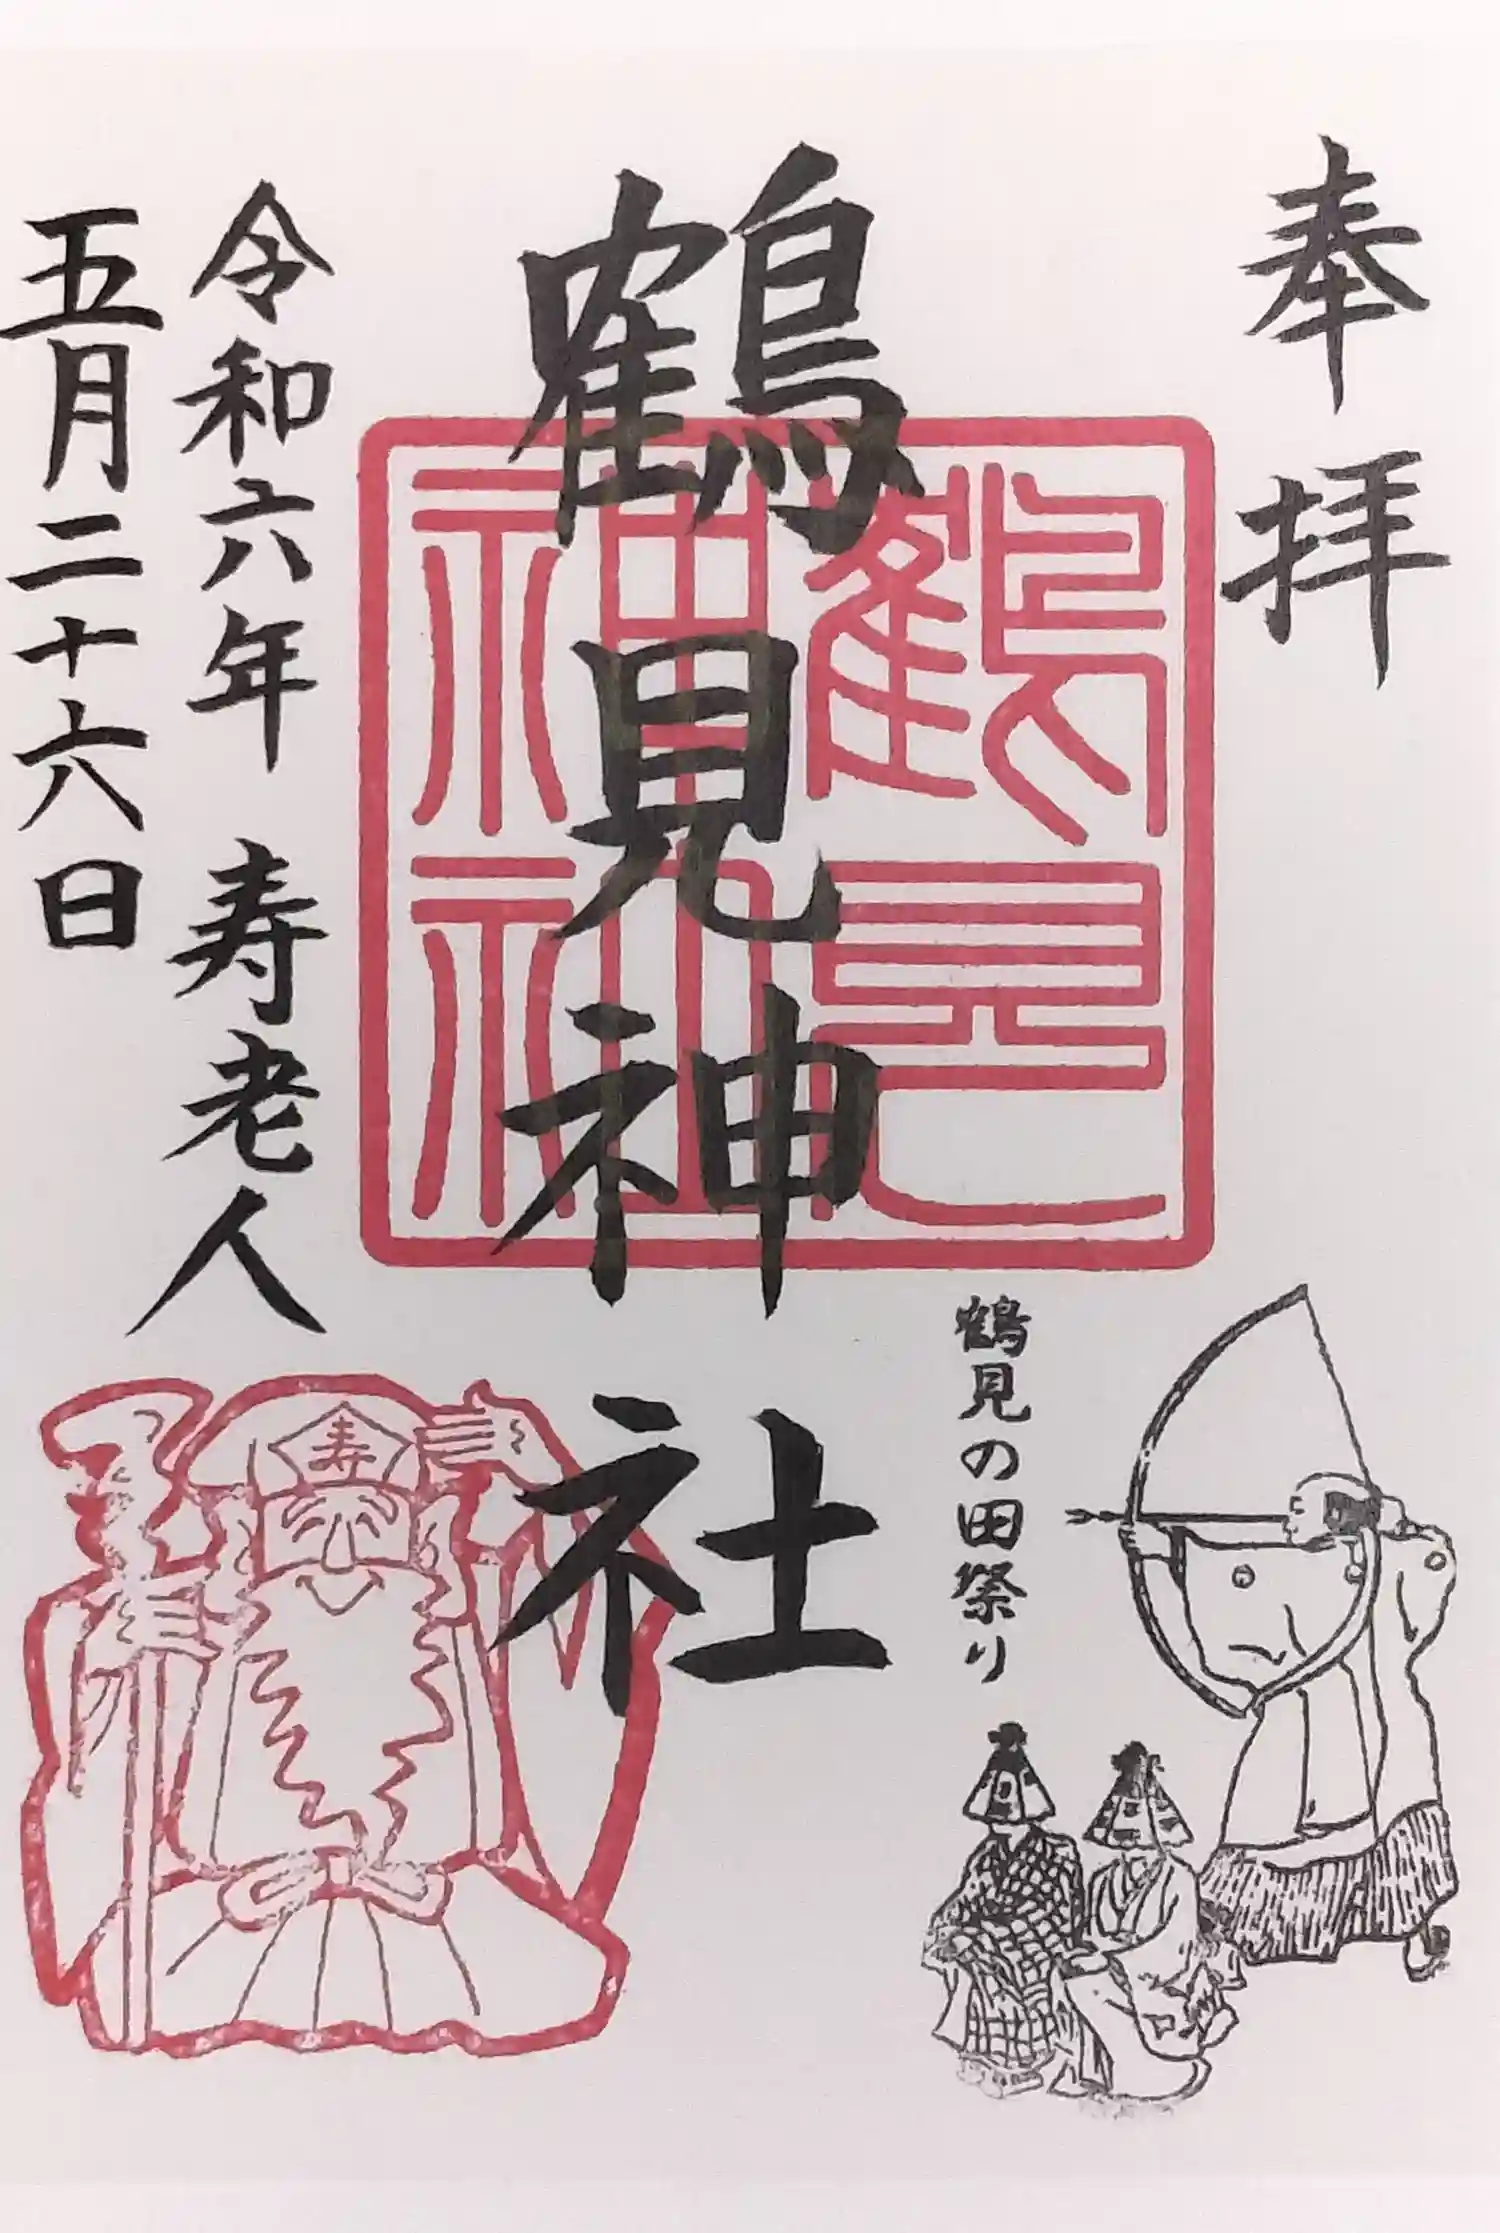 奉拝
鶴見神社
鶴見神社
鶴見の田祭り
令和六年 寿老人
五月二十六日
寿